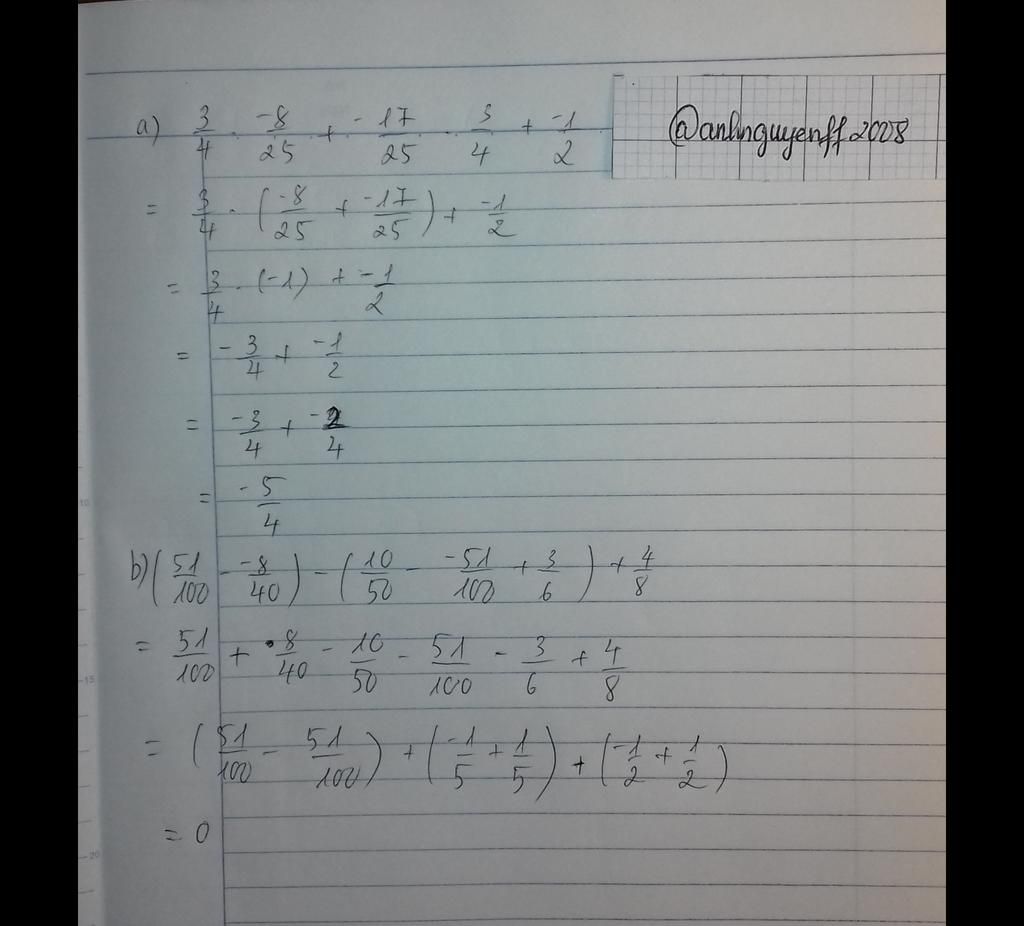 a) 3/4 . -8/25 + -17/25 . 3/4 + -1/2
@anhnguyenff2008
= 3/4 . (-8/25 + -17/25) + -1/2
= 3/4 . (-1) + -1/2
= -3/4 + -1/2
= -3/4 + -2/4
= -5/4
b) (51/100 - -8/40) - (10/50 - -51/100 + 3/6) + 4/8
= 51/100 + 8/40 - 10/50 - 51/100 - 3/6 + 4/8
= (51/100 - 51/100) + (-1/5 + 1/5) + (-1/2 + 1/2)
= 0